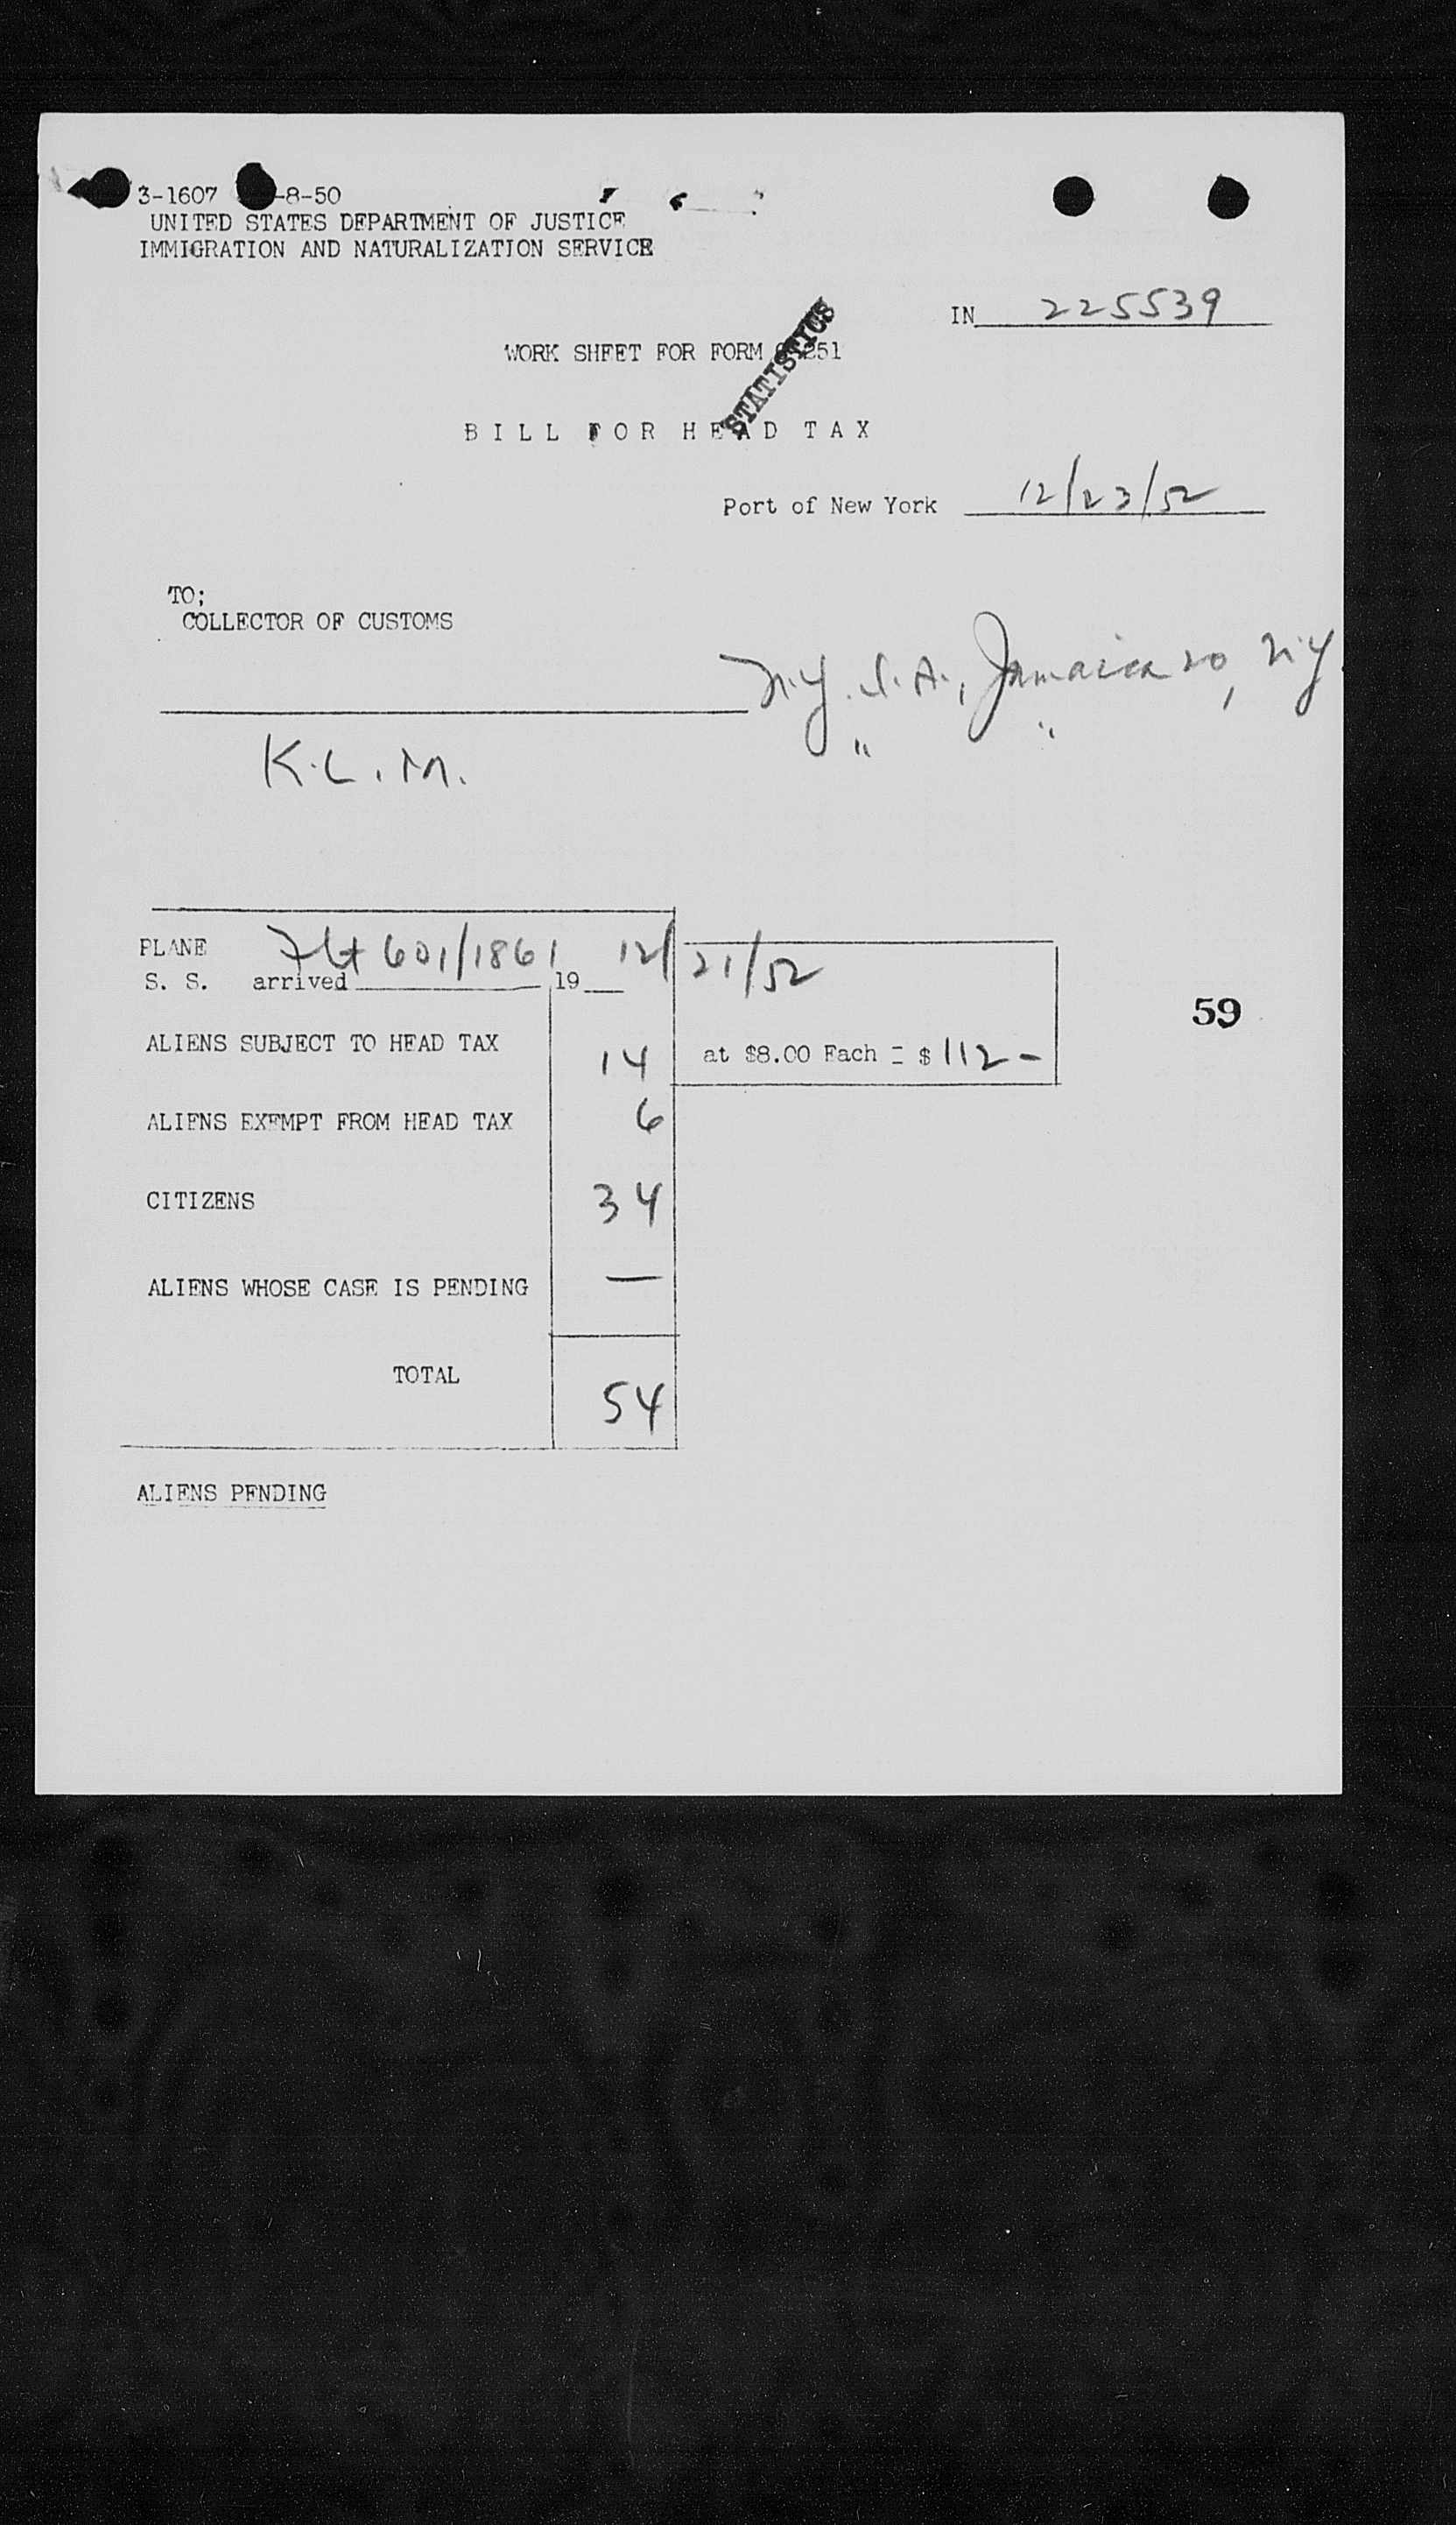 3-1607 -8-50
UNITED STATES DEPARTMENT OF JUSTICE
IMMIGRATION AND NATURALIZATION SERVICE
IN 225539
STATISTICS
WORK SHEET FOR FORM 251
BILL FOR HEAD TAX
Port of New York 12/23/52
TO;
COLLECTOR OF CUSTOMS
N.Y. I. A., Jamaica 20, N.Y.
K.L.M. " "
PLANE Flt 601/1861 12/21/52
S. S. arrived 19
59
ALIENS SUBJECT TO HEAD TAX 14 at $8.00 Each = $ 112 -
ALIENS EXEMPT FROM HEAD TAX 6
CITIZENS 34
ALIENS WHOSE CASE IS PENDING —
TOTAL 54
ALIENS PENDING